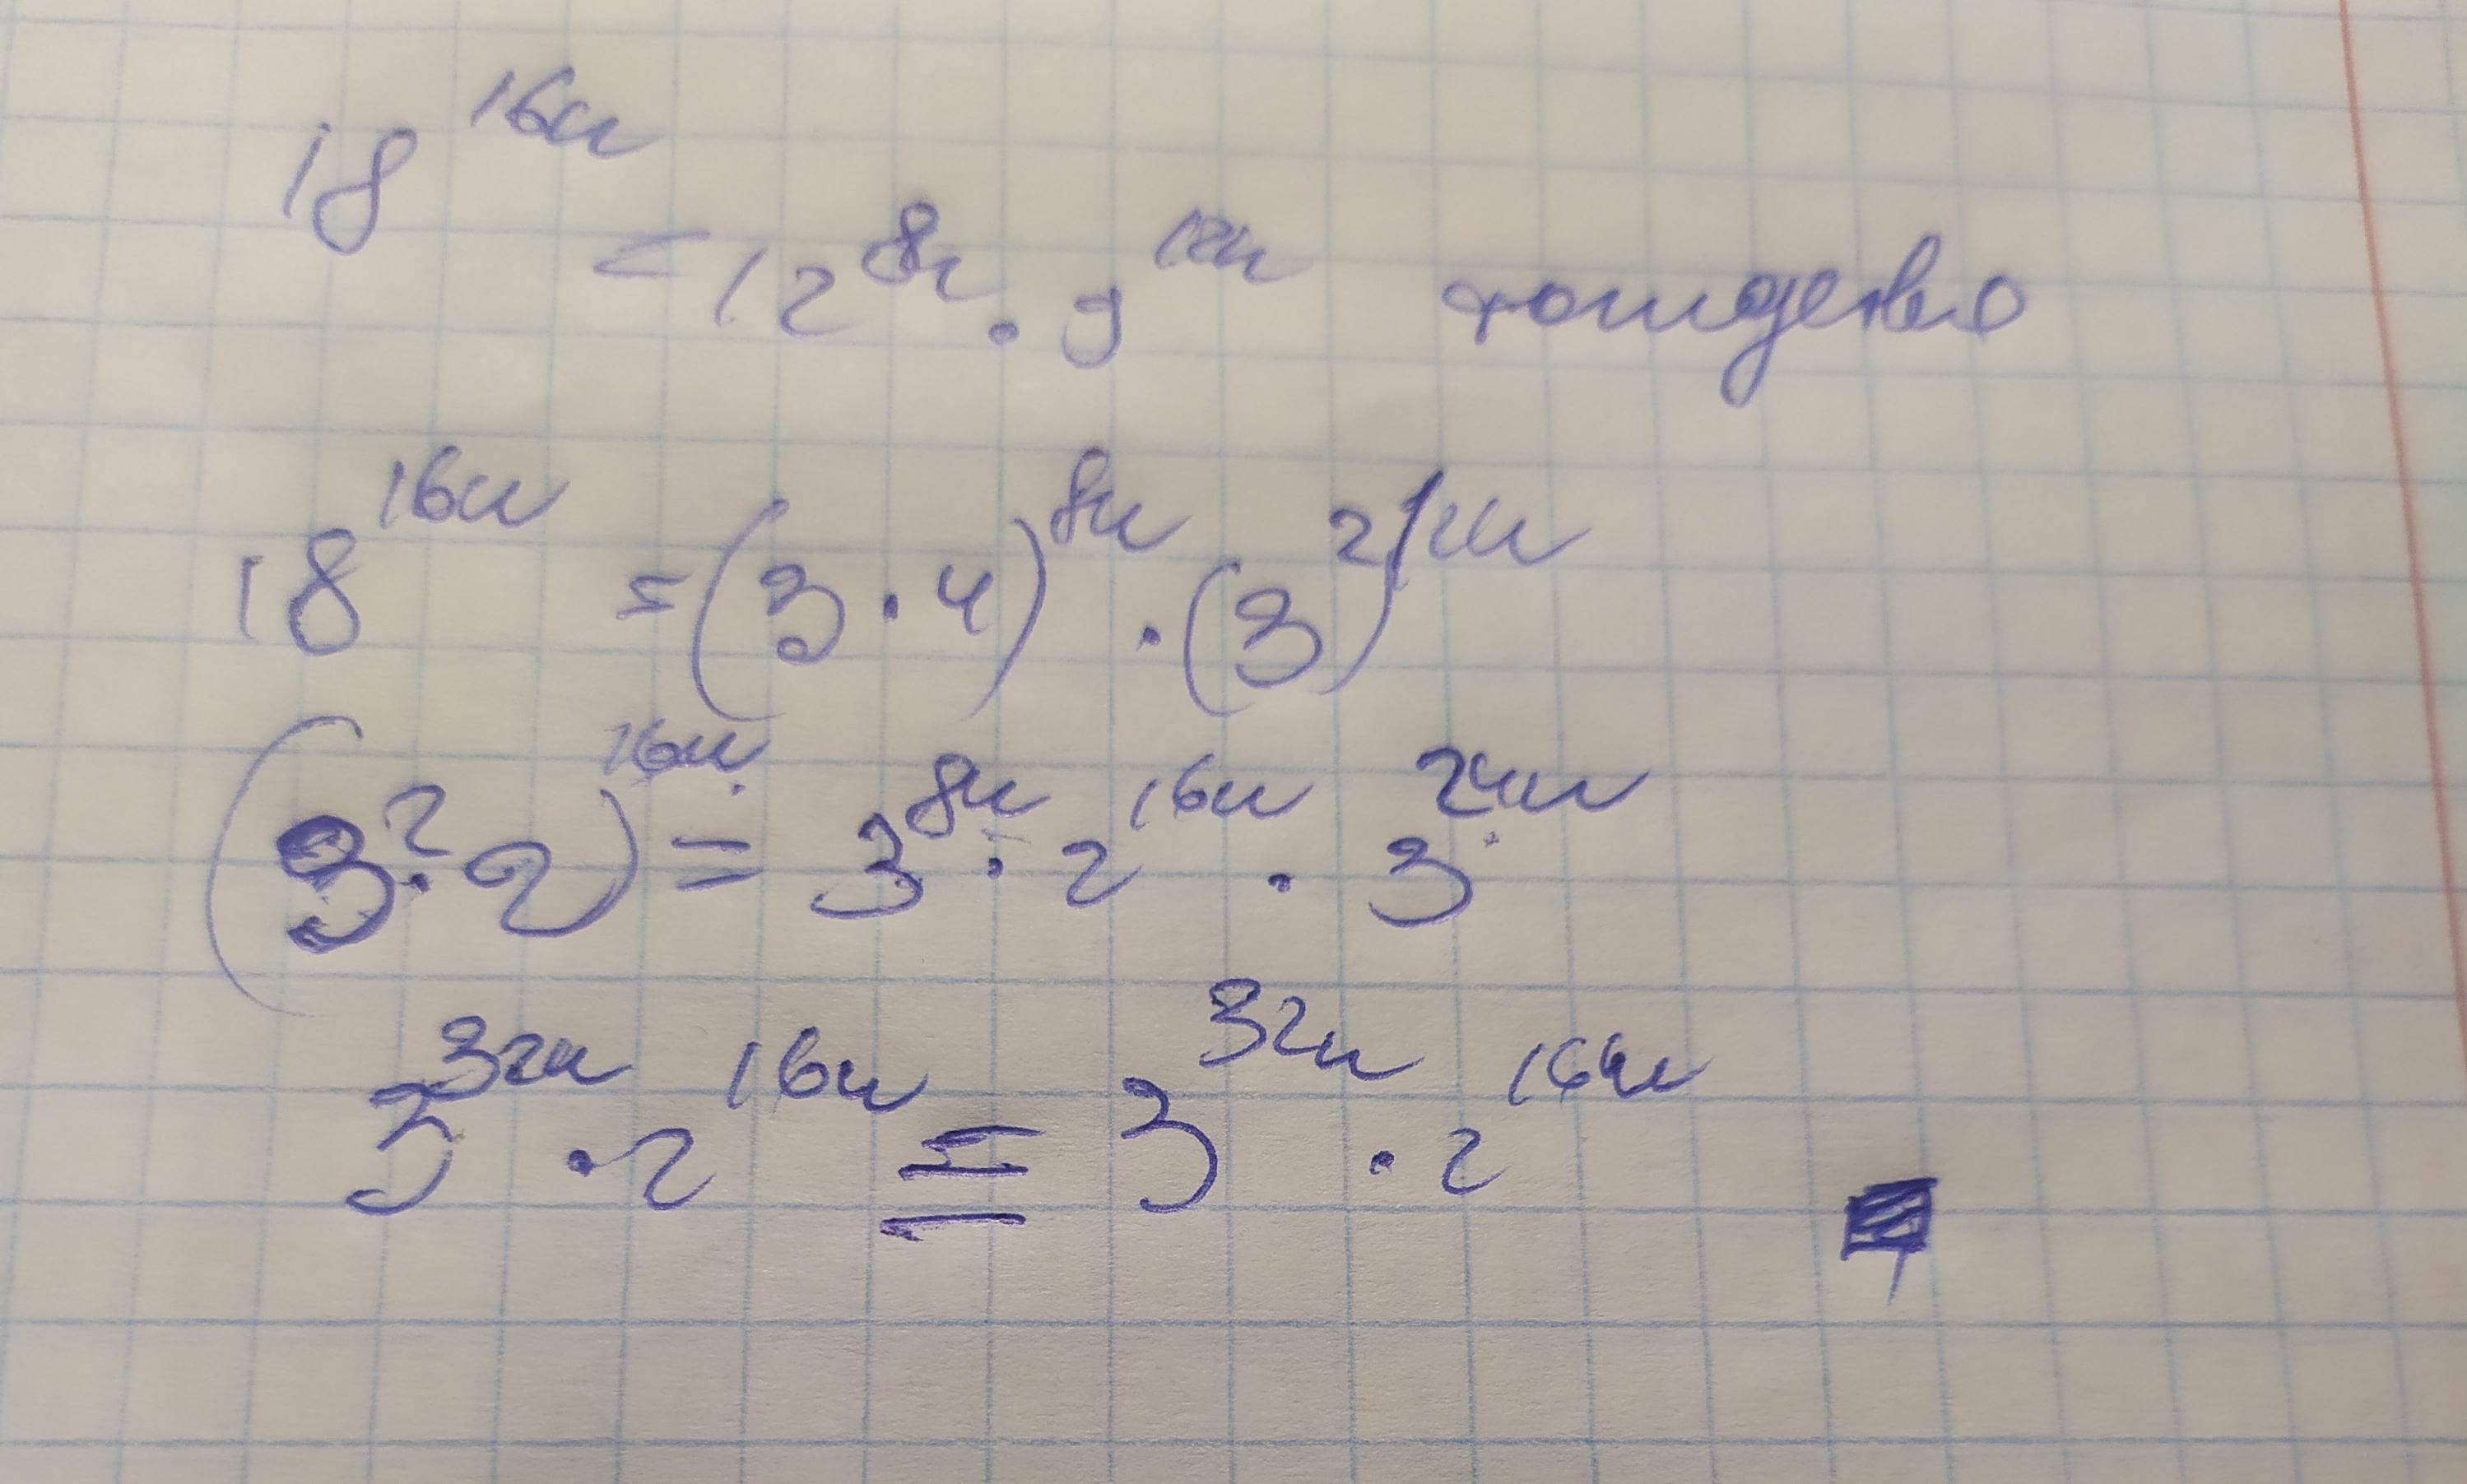 18^16n = 12^8n · 9^12n тождество
18^16n = (3·4)^8n · (3^2)^12n
(3^2·2)^16n = 3^8n · 2^16n · 3^24n
3^32n · 2^16n = 3^32n · 2^16n